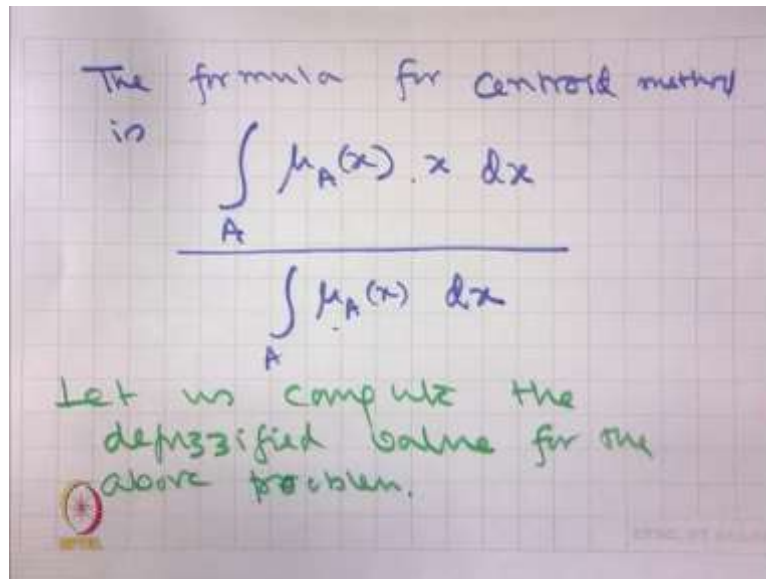 The formula for centroid method
is
∫_A μ_A(x) . x dx
∫_A μ_A(x) dx
Let us compute the
defuzzified value for the
above problem.
NPTEL